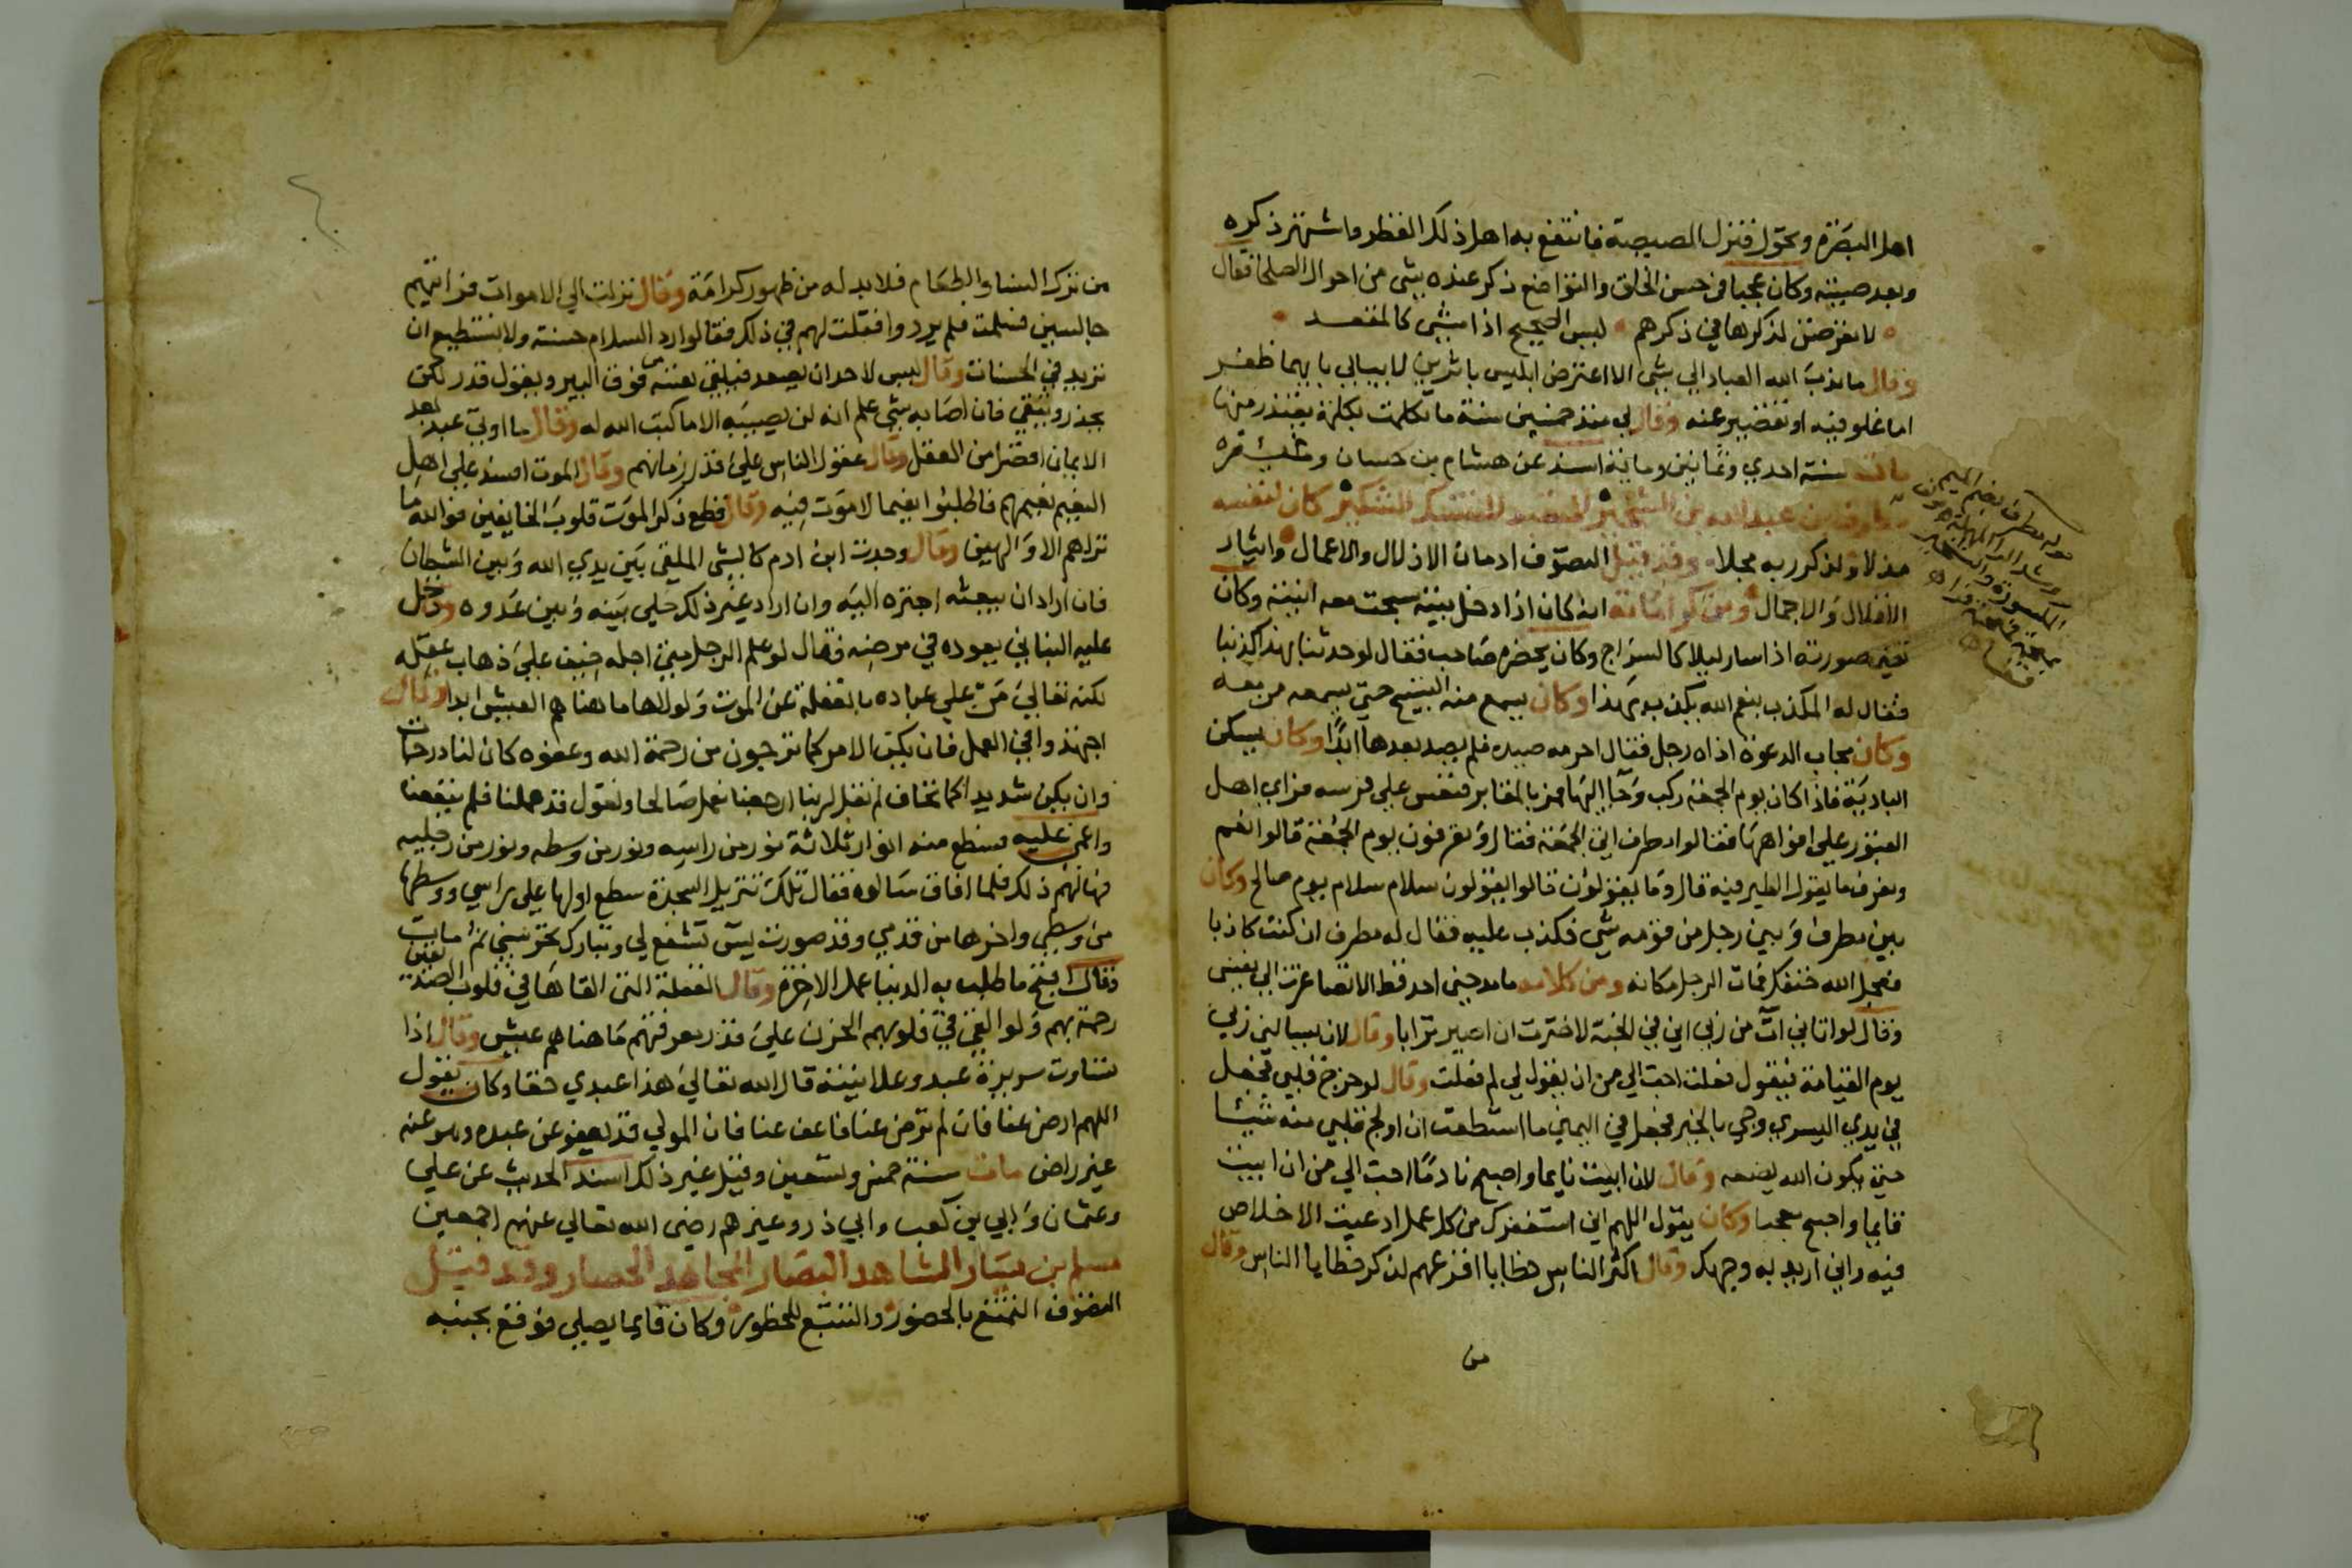 اهل البصرة وتحول فنزل المصيصة فانتفع به اهل ذلك القطر واشتهر ذكره
وبعد صيته وكان عجيبا في حسن الخلق والتواضع ذكر عنده بشي من احوال الصلحا فقال
لا تعرضن لذكرها في ذكرهم ليس الصحيح اذا مشي كالمقعد
وقال ما ندب الله العباد الي شي الا اعترض ابليس بامرين لا يبالي بايهما ظفر
اما غلو فيه او تقصير عنه وقال لي منذ خمسين سنة ما تكلمت بكلمة يعتذر منها
مات سنة احدي وثمانين وماية اسند عن هشام بن حسان وغيره
مطرف بن عبد الله بن الشخير المتعبد المتشكر كان لنفسه
مذلا ولذكر ربه مجلا وقد قيل التصوف ادمان الاذلال والاعمال وايثار
الاقلال والاجمال ومن كراماته انه كان اذا دخل بيته سبحت معه ابنيته وكان
تضي صورته اذا سار ليلا كالسراج وكان يحضره صاحب فقال لو حدثنا بهذا كذبنا
فقال له المكذب بنعم الله يكذب بهذا وكان يسمع منه التسبيح حتي يسمعه من معه
وكان مجاب الدعوة اذاه رجل فقال احرمه صيده فلم يصد بعدها ابدا وكان يسكن
البادية فاذا كان يوم الجمعة ركب وجا اليها فمر بالمقابر فنعس علي فرسه فراي اهل
القبور علي افواهها فقالوا مطرف اتي الجمعة فقال وتعرفون يوم الجمعة قالوا نعم
ونعرف ما يقول الطير فيه قال وما يقولون قالوا يقولون سلام سلام يوم صالح وكان
بين مطرف وبين رجل من قومه شي فكذب عليه فقال له مطرف ان كنت كاذبا
فعجل الله حتفك فمات الرجل مكانه ومن كلامه ما مدحني احد قط الا تصاغرت الي نفسي
وقال لو اتاني ات من ربي اني في الجنة لاخترت ان اصير ترابا وقال لان يسالني ربي
يوم القيامة فيقول فعلت احب الي من ان يقول لي لم فعلت وقال لو خرج قلبي فجعل
في يدي اليسري وجي بالخير فجعل في اليمني ما استطعت ان اولج قلبي منه شيئا
حتي يكون الله يضعه وقال لان ابيت نايما واصبح نادما احب الي من ان ابيت
قايما واصبح معجبا وكان يقول اللهم اني استغفرك من كل عمل ادعيت الاخلاص
فيه واني اريد به وجهك وقال اكثر الناس خطايا افزعهم لذكر خطايا الناس وقال
من
من ترك النسا والطعام فلا بد له من ظهور كرامة وقال نزلت الي الاموات فراتيهم
جالسين فسلمت فلم يردوا فقلت لهم في ذلك فقالوا رد السلام حسنة ولا نستطيع ان
نزيد في الحسنات وقال ليس لاحد ان يصعد فيلقي نفسه من فوق البير ويقول قدر لكن
يحذر ويتقي فان اصابه شي علم انه لن يصيبه الا ما كتب الله له وقال ما اوتي عبد بعد
الايمان افضل من العقل وقال عقول الناس علي قدر زمانهم وقال الموت افسد علي اهل
النعيم نعيمهم فاطلبوا نعيما لا موت فيه وقال قطع ذكر الموت قلوب الخايفين فوالله ما
تراهم الا والهين وقال وجدت ابن ادم كالشي الملقي بين يدي الله وبين الشيطان
فان اراد ان ينعشه اجتره اليه وان اراد غير ذلك خلي بينه وبين عدوه ودخل
عليه البناني يعوده في مرضه فقال لو علم الرجل متي اجله خيف علي ذهاب عقله
لكنه تعالي من علي عباده بالغفلة عن الموت ولولاها ما هناهم العيش ابدا وقال
اجتهدوا في العمل فان يكن الامر كما ترجون من رحمة الله وعفوه كان لنا درجات
وان يكن شديدا كما نخاف لم نقل ربنا ارجعنا نعمل صالحا ونقول قد عملنا فلم ينفعنا
واغمي عليه فسطع منه انوار ثلاثة نور من راسه ونور من وسطه ونور من رجليه
فهالهم ذلك فلما افاق سالوه فقال تلك تنزيل السجدة سطع اولها علي راسي ووسطها
من وسطي واخرها من قدمي وقد صورت ليس تشفع لي وتبارك تحرسني ثم مات
وقال اقبح ما طلب به الدنيا عمل الاخرة وقال الغفلة التي القاها في قلوب الصديقين
رحمة بهم ولو القي في قلوبهم الحزن علي قدر معرفتهم ما هناهم عيش وقال اذا
تساوت سريرة عبد وعلانيته قال الله تعالي هذا عبدي حقا وكان يقول
اللهم ارض عنا فان لم ترض عنا فاعف عنا فان المولي قد يعفو عن عبده وهو عنه
غير راض مات سنة خمس وتسعين وقيل غير ذلك اسند الحديث عن علي
وعثمان وابي بن كعب وابي ذر وغيرهم رضي الله تعالي عنهم اجمعين
مسلم بن يسار المشاهد البصار المجاهد الحصار وقد قيل
التصوف التمتع بالحضور والتتبع للخطور وكان قايما يصلي فوقع بجنبه